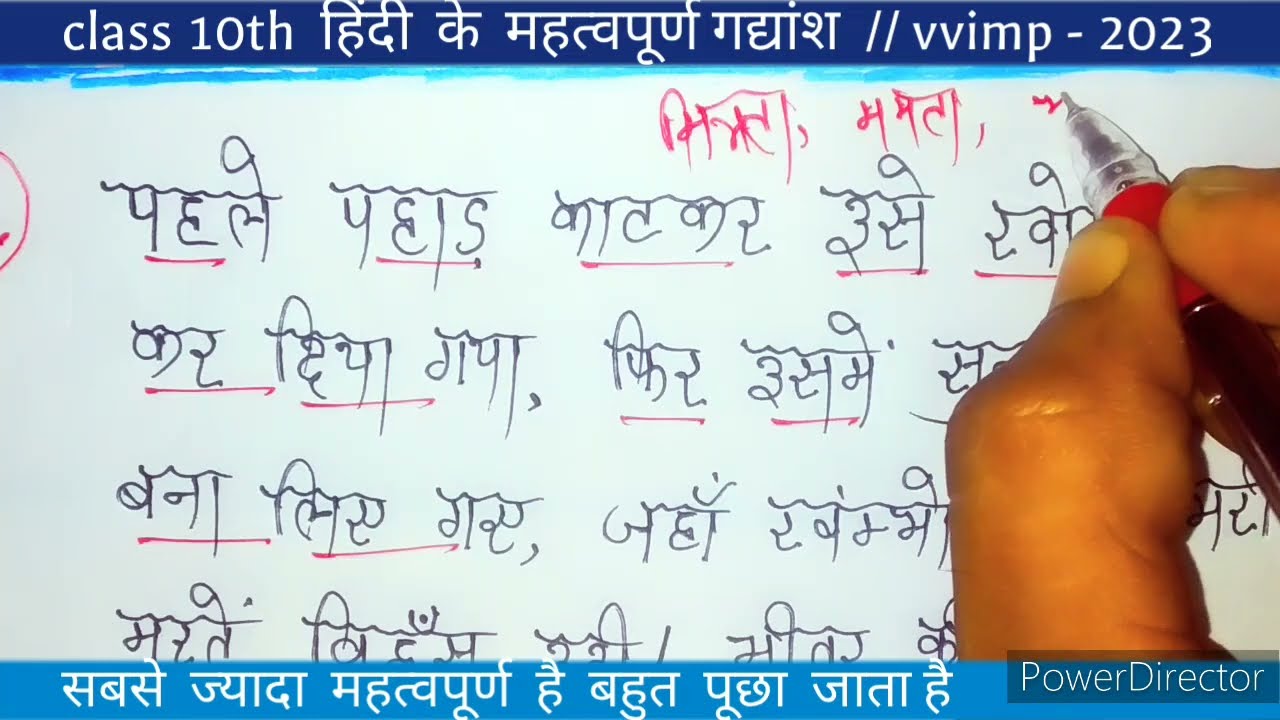 class 10th हिंदी के महत्वपूर्ण गद्यांश // vvimp - 2023
मित्रता, ममता,
पहले पहाड़ काटकर उसे
कर दिया गया, फिर उसमें
बना लिए गए, जहाँ खंम्भो
मरतें विहँस भीतर
सबसे ज्यादा महत्वपूर्ण है बहुत पूछा जाता है
PowerDirector